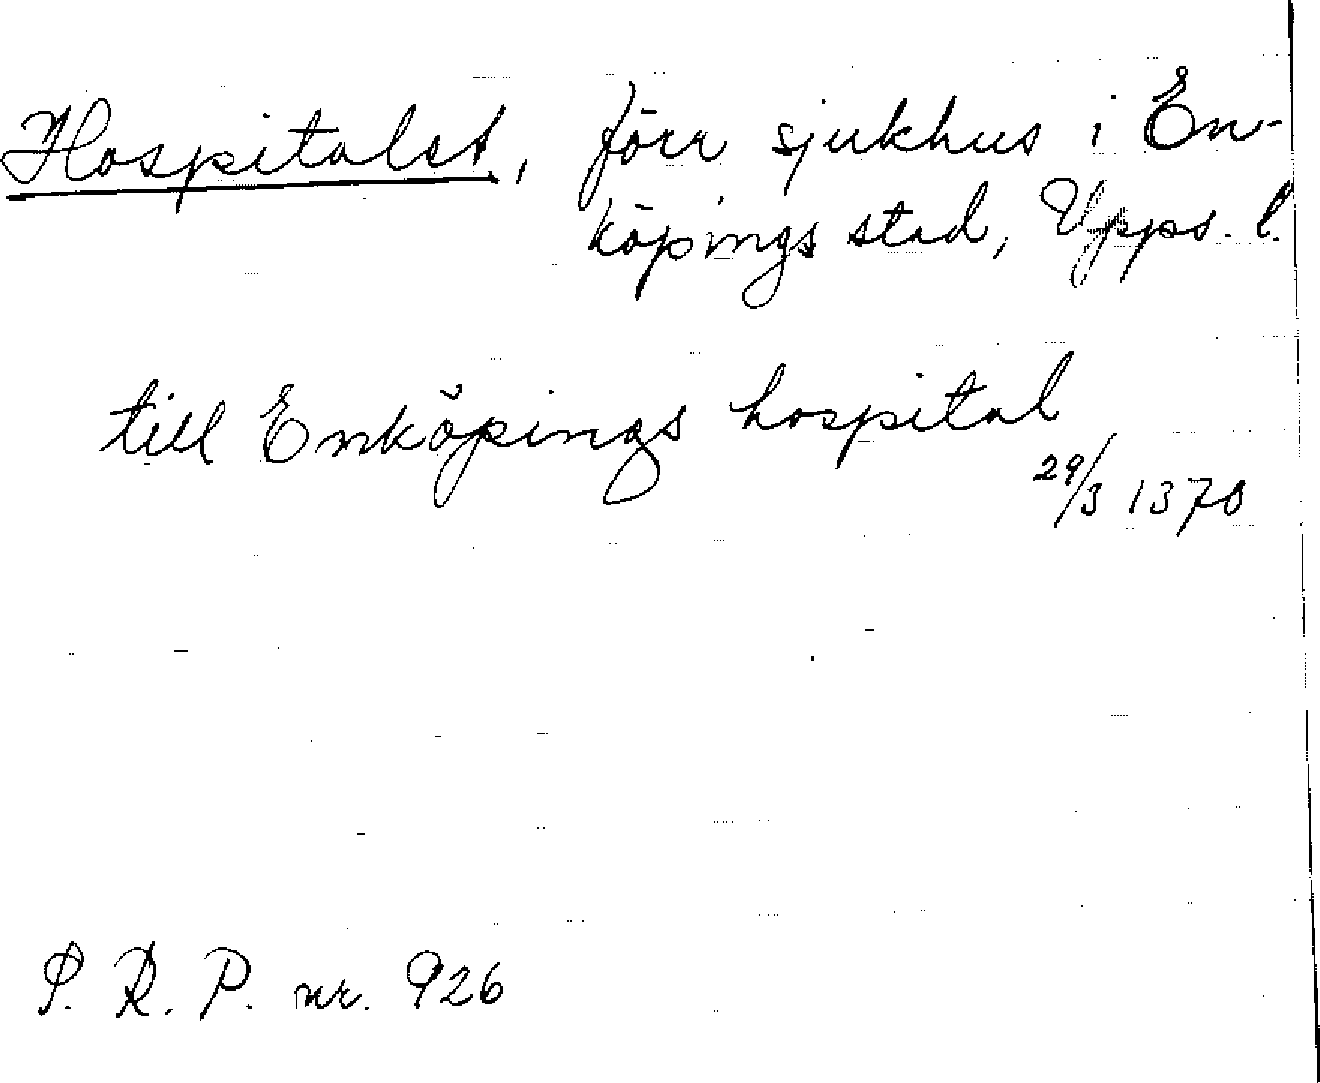 Hospitalet, förr sjukhus i En-
köpings stad, Upps. l.
till Enköpings hospital
29/3 1370
S. R. P. nr. 926